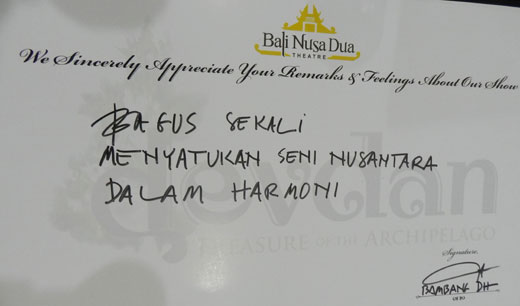 Bali Nusa Dua
THEATRE
We Sincerely Appreciate Your Remarks & Feelings About Our Show
BAGUS SEKALI
MENYATUKAN SENI NUSANTARA
DALAM HARMONI
devdan
TREASURE OF THE ARCHIPELAGO
Signature
BAMBANG DH